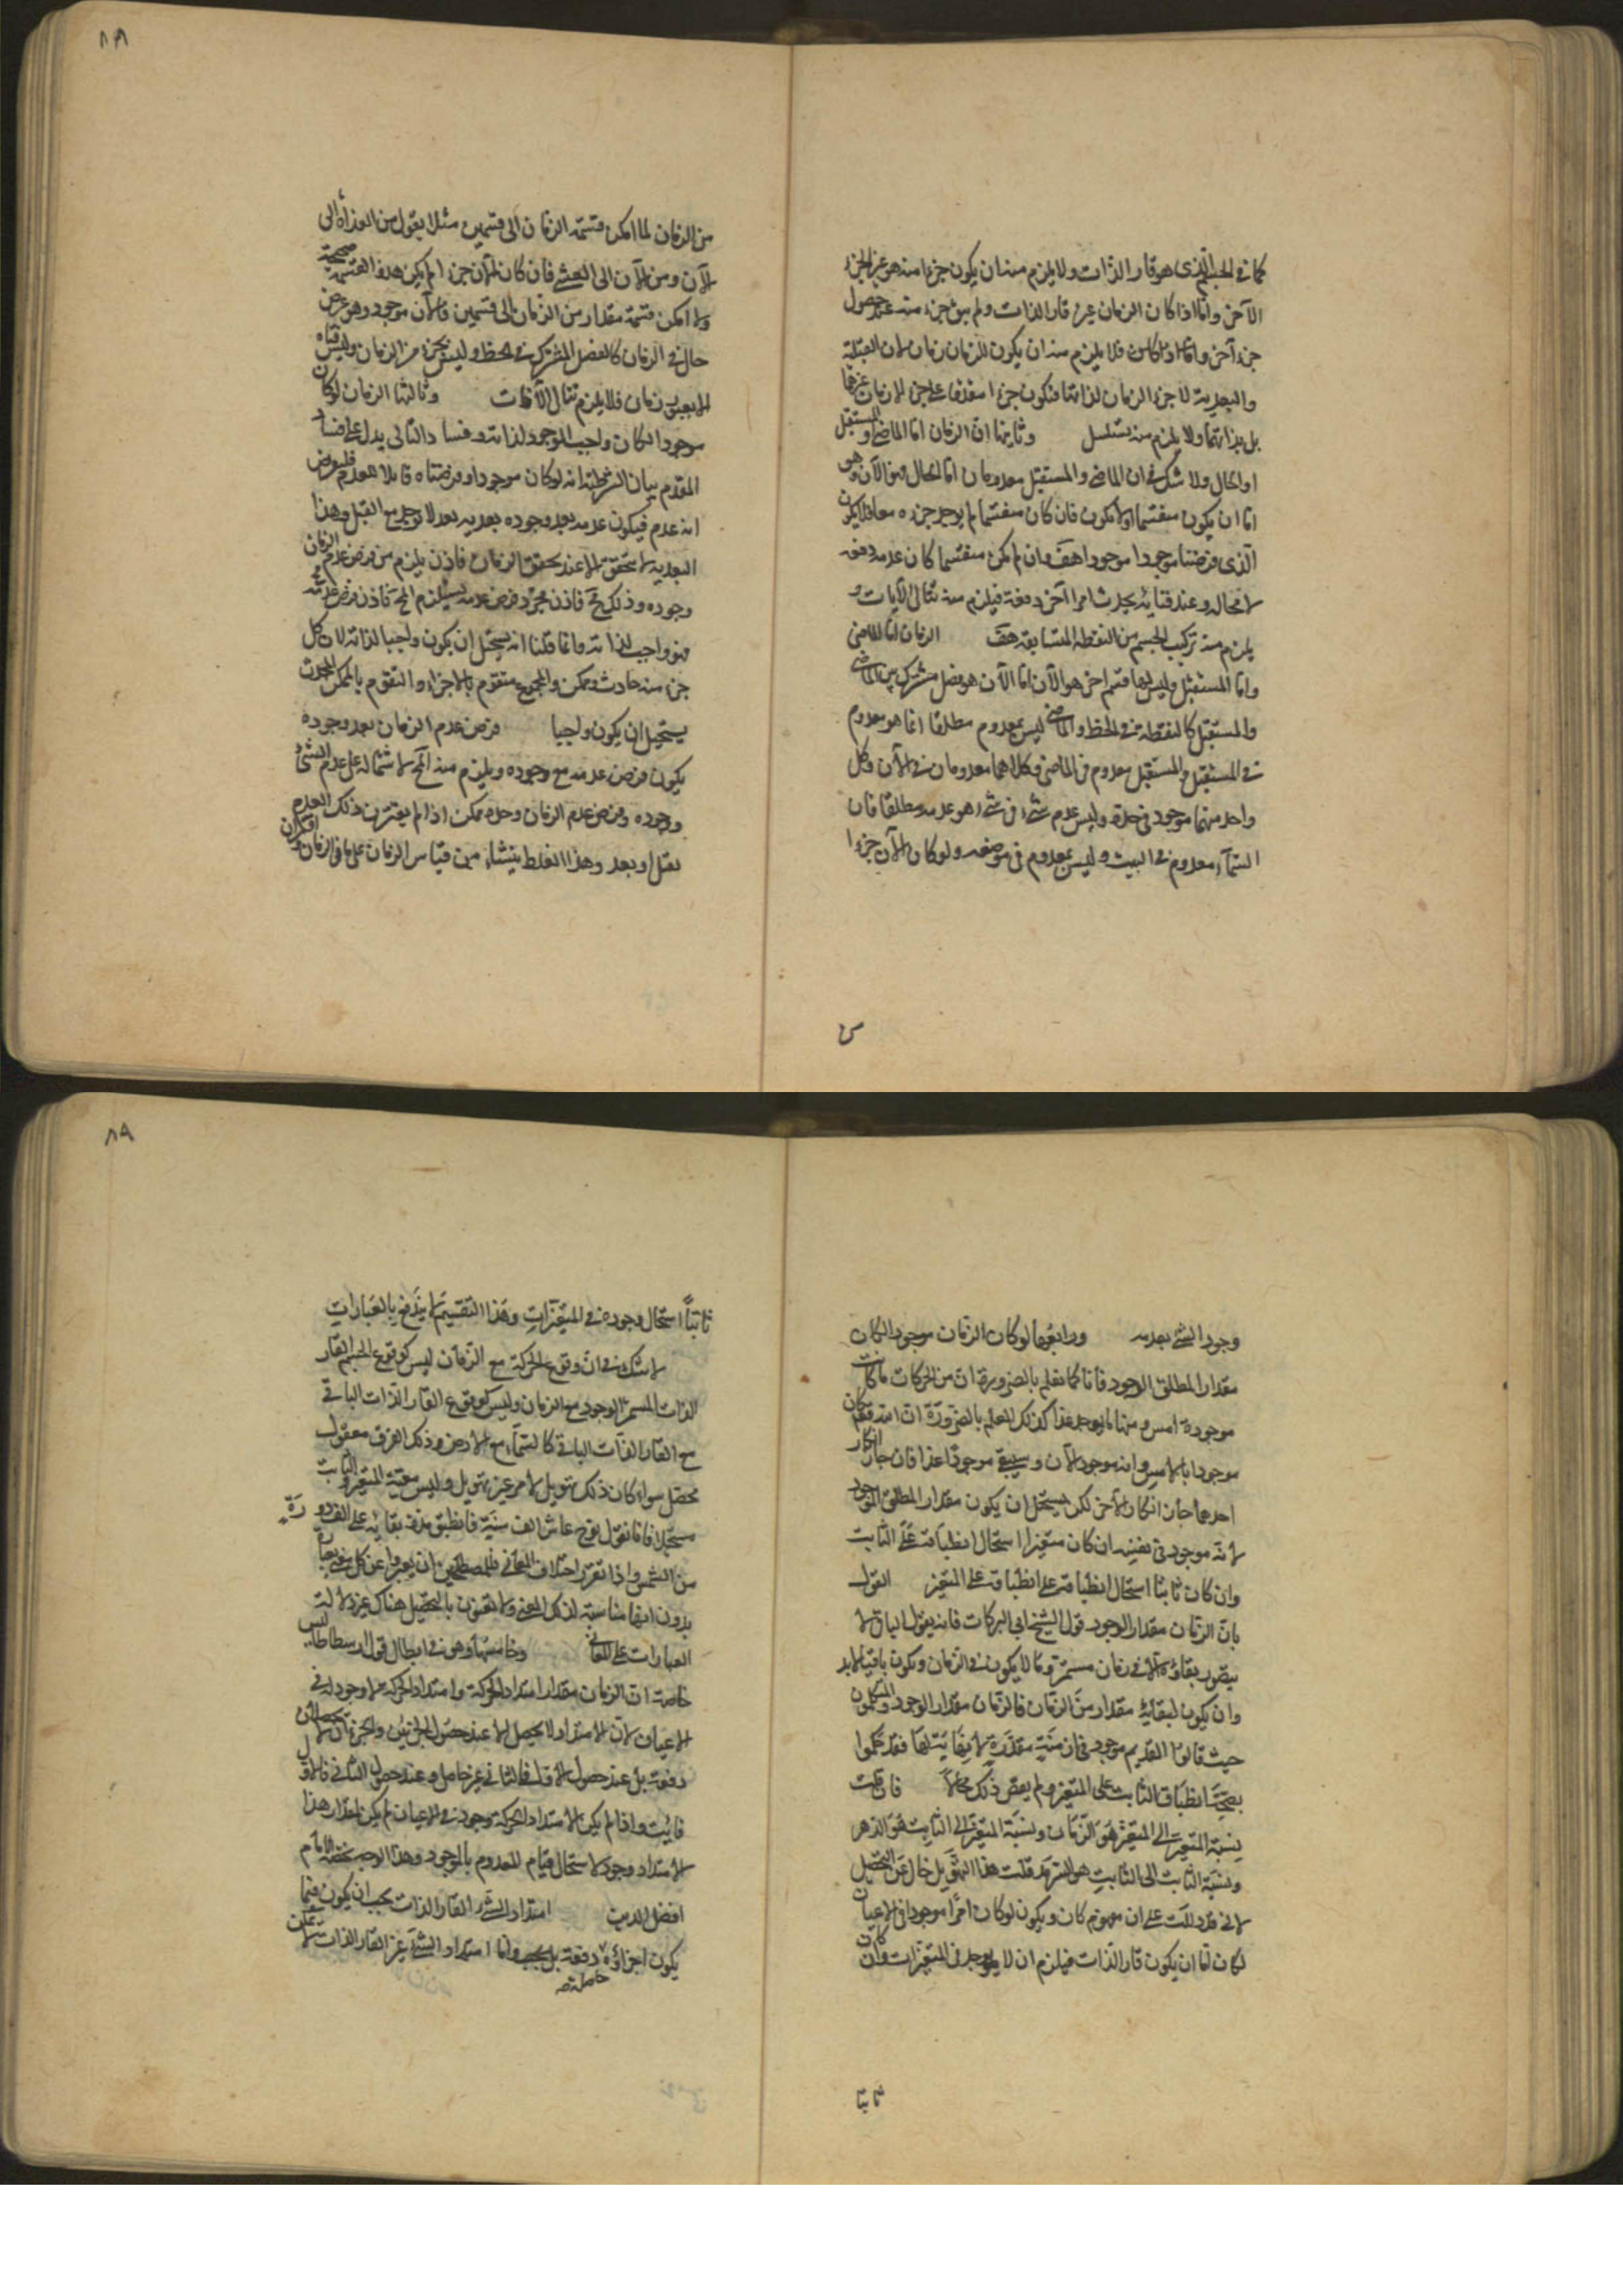 ٨٨
كما في الجسم الذى هو قار الذات ولا يلزم منه ان يكون جزءا منه هو عين الجزء
الآخر وامّا اذا كان الزمان غير قار الذات ولم يبق جزء منه عند حصول
جزء آخر فلا يلزم منه ان يكون للزمان زمان لان القبلية
والبعدية لاجزاء الزمان لذاتها فتكون جزءا متقدما على جزء لا بزمان غيرهما
بل بذاتهما ولا يلزم منه تسلسل وثانيها انّ الزمان امّا الماضى او المستقبل
او الحال ولا شك فى ان الماضى والمستقبل معدومان امّا الحال فهو الآن وهو
امّا ان يكون منقسما او لا يكون فان كان منقسما لم يوجد جزءه معا فلا يكون
الذى فرضنا موجودا موجودا هف وان لم يكن منقسما كان عدمه دفعة
لا محالة وعند فنائه يحدث امرا آخر دفعة فيلزم منه تتالى الآنات و
يلزم منه تركيب الجسم من النقطة المتتابعة هف الزمان امّا الماضى
وامّا المستقبل وليس لهما قسم آخر هو الآن امّا الآن هو فصل مشترك بين الماضى
والمستقبل كالنقطة فى الخط والماضى ليس بمعدوم مطلقا انما هو معدوم
فى المستقبل والمستقبل معدوم فى الماضى وكلاهما معدومان فى الآن وكل
واحد منهما موجود فى حدة وليس عدم شىء فى شىء هو عدمه مطلقا فان
السّماء معدوم فى البيت وليس بمعدوم فى موضعه ولو كان الآن جزءا
من الزمان لما امكن قسمة الزمان الى قسمين مثلا يقول من الغداة الى
الآن ومن الآن الى العشى فان كان الآن جزءا لم يكن هذه القسمة صحيحة
ولا امكن قسمة مقدار من الزمان الى قسمين فالآن موجود وهو عرض
حال فى الزمان كالفصل المشترك فى الخط وليس بجزء من الزمان وليس فناه
الا بعبور زمان فلا يلزم تتال الآنات وثالثها الزمان لو كان
موجودا لكان واجب الوجود لذاته وفساد التالى يدل على فساد
المقدم بيان الشرطية انه لو كان موجودا وفرضناه قابلا للعدم فليفرض
انه عدم فيكون عدمه بعد وجوده بعدية بعد لا توجد مع القبل وهذا
البعدية لا تتحقق الا عند تحقق الزمان فاذن يلزم من فرض عدم الزمان
وجوده وذلك مح فاذن مجرد فرض عدمه يستلزم المح فاذن فرض عدمه مح
فهو واجب لذاته وانما قلنا انه يستحيل ان يكون واجبا لذاته لان كل
جزء منه حادث وممكن والمجموع متقوم بالاجزاء والتقوم بالممكن المحدث
يستحيل ان يكون واجبا فرض عدم الزمان بعد وجوده
يكون فرض عدمه مع وجوده ويلزم منه المح لاشتماله على عدم الشىء و
وجوده وفرض عدم الزمان وحده ممكن اذا لم يقترن ذلك العدم
بقبل او بعد وهذا الغلط ينشاء من قياس الزمان على ما فى الزمان واقتران
٨٩
وجود الشىء بعدمه ورابعها لو كان الزمان موجودا لكان
مقدار المطلق الوجود فانا كما نعلم بالضرورة ان من الحركات ما كانت
موجودة امس ومنها ما يوجد غدا كذلك نعلم بالضرورة ان الله تعالى كان
موجودا بالامس وانه موجود الآن وسيبقى موجودا غدا فان جاز انكار
احدهما جاز انكار الآخر لكن يستحيل ان يكون مقدار المطلق الموجود
لانه موجود فى نفسه ان كان متغيرا استحال انطباقه على الثابت
وان كان ثابتا استحال انطباقه على المتغير القول
بانّ الزمان مقدار الوجود قول الشيخ ابى البركات فانه يقول الباقى لا
يتصور بقاؤه الا فى زمان مستمر وما لا يكون فى الزمان ويكون باقيا لابد
وان يكون لبقائه مقدار من الزمان فالزمان مقدار الوجود والمتكلمون
حيث قالوا القديم موجود فى ازمنة مقدرة لا نهاية لها فقد حكموا
بصحة انطباق الثابت على المتغير ولم يعقل ذلك محالا فان قلت
نسبة المتغير الى المتغير هو الزمان ونسبة المتغير الى الثابت هو الدهر
ونسبة الثابت الى الثابت هو السرمد قلت هذا التهويل خال عن التحصيل
لانى قد دللت على ان مفهوم كان ويكون لو كان امرا موجودا فى الاعيان
لكان امّا ان يكون قار الذات فيلزم ان لا يوجد فى المتغيرات وان كان
ثابتا
ثابتا استحال وجوده فى المتغيرات وهذا التقسيم لا يندفع بالعبارات
لا شك فى ان وقوع الحركة مع الزمان ليس كوقوع الجسم القار
الذات المستمر الوجود مع الزمان وليس كوقوع القار الذات الباقى
مع القار الذات الباقى كالسماء مع الارض وذلك الفرق معقول
محصل سواء كان ذلك تهويل لا مر غير تهويل وليس معية المتغير والثابت
مستحيلا فانا نقول نوح عاش الف سنة فانطبق مدة بقائه على الف دورة
من الشمس واذا تقرر اختلاف المعانى فللمصطلحين ان يعبروا عن كل معنى بعبارة
يرون انها مناسبة لذلك المعنى ولا يعنون بالتحصيل هناك غير دلالة
العبارات على المعانى وخامسها وهو فى ابطال قول ارسطاطاليس
خاصة ان الزمان مقدار امتداد الحركة وامتداد الحركة لا وجود له فى
الاعيان لان الامتداد لا يحصل الا عند حصول الجزئين والجزئان لا يحصلان
دفعة بل عند حصول الاول فالثانى غير حاصل وعند حصول الثانى فالاول
فائت واذا لم يكن لامتداد الحركة وجود فى الاعيان لم يكن لمقدار هذا
الامتداد وجود لاستحالة قيام الموجود بالمعدوم وهذا الوجه لخصه الامام
افضل الدين امتداد الشىء القار الذات يجب ان يكون فيما
يكون اجزاؤه حاصلة دفعة بل يجب وامّا امتداد الشىء غير القار الذات لا